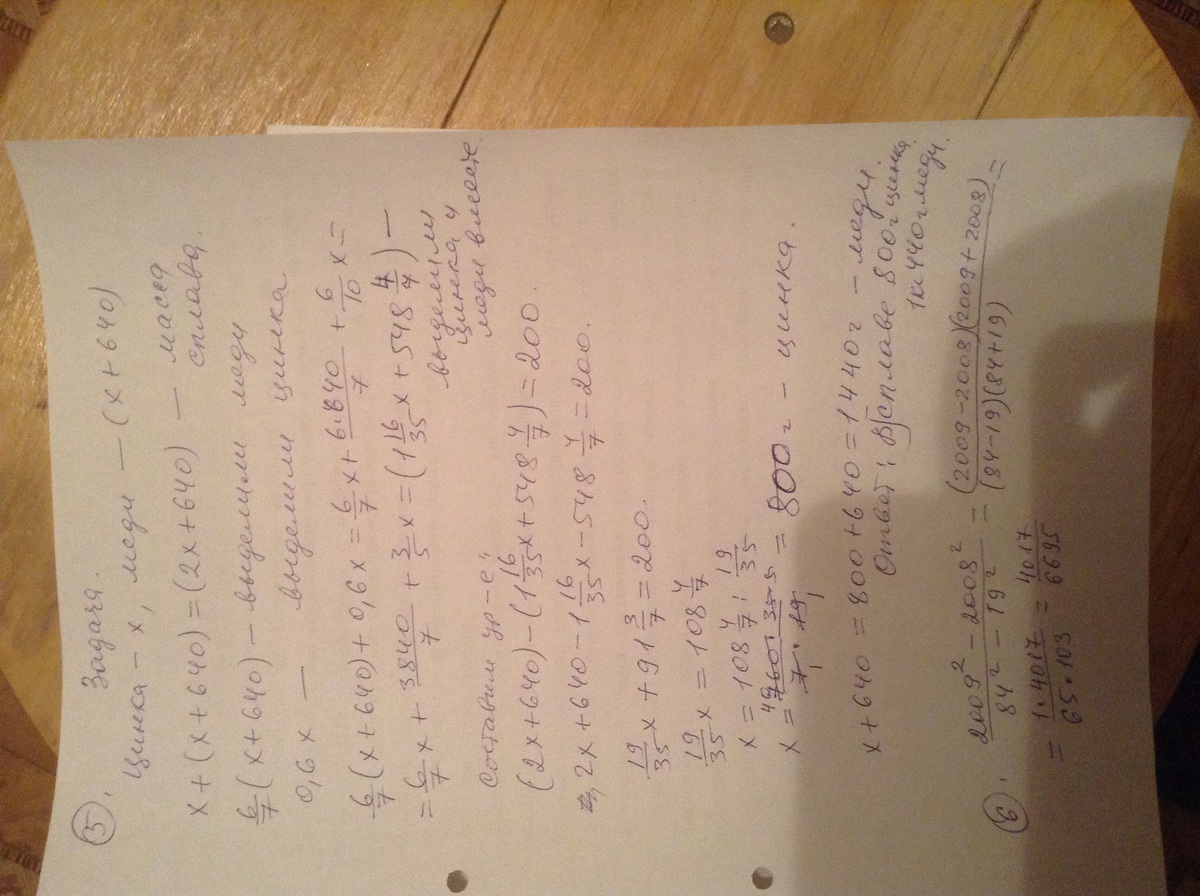 ⑤. Задача.
Цинка – x, меди — (x+640)
x+(x+640)=(2x+640) — масса сплава.
6/7(x+640) – выделили меди
0,6x — выделили цинка
6/7(x+640)+0,6x = 6/7x + 6·640/7 + 6/10x =
= 6/7x + 3840/7 + 3/5x = (1 16/35x + 548 4/7) — выделили цинка и меди вместе.
Составим ур-е:
(2x+640)–(1 16/35x+548 4/7)=200.
2x+640–1 16/35x–548 4/7=200.
19/35x + 91 3/7 = 200.
19/35x = 108 4/7
x = 108 4/7 : 19/35
x = 760·35/7·19 = 800г – цинка.
x+640 = 800+640=1440г – меди.
Ответ: В сплаве 800г цинка, 1кг 440г меди.
⑥ 2009² – 2008²/84² – 19² = (2009–2008)(2009+2008)/(84–19)(84+19) =
= 1·4017/65·103 = 4017/6695